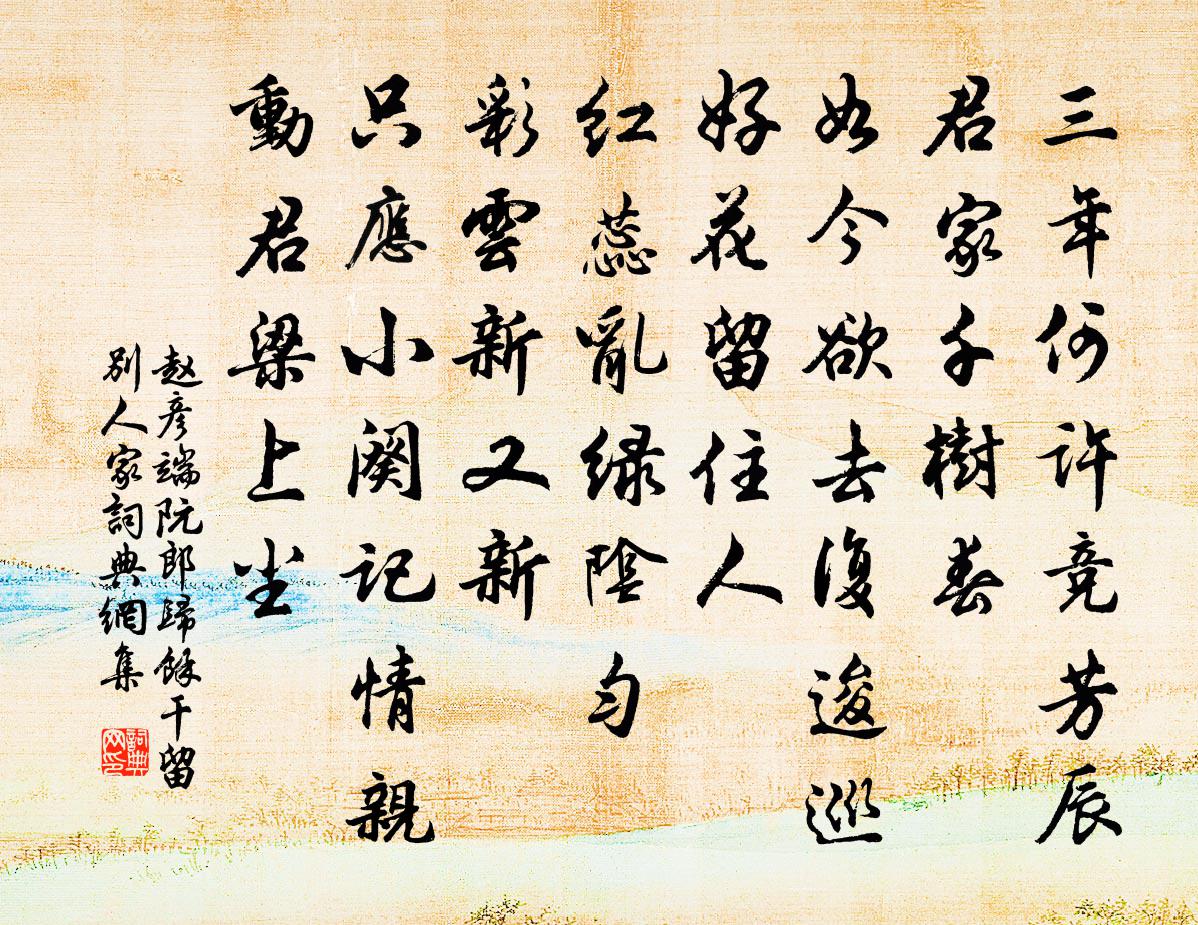 三年何許竞芳辰
君家千樹春
如今欲去復逡巡
好花留住人
红蕊亂緑陰匀
彩雲新又新
只應小阕記情親
動君梁上尘
赵彦端阮郎歸餘干留
别人家詞典網集
詞典网印